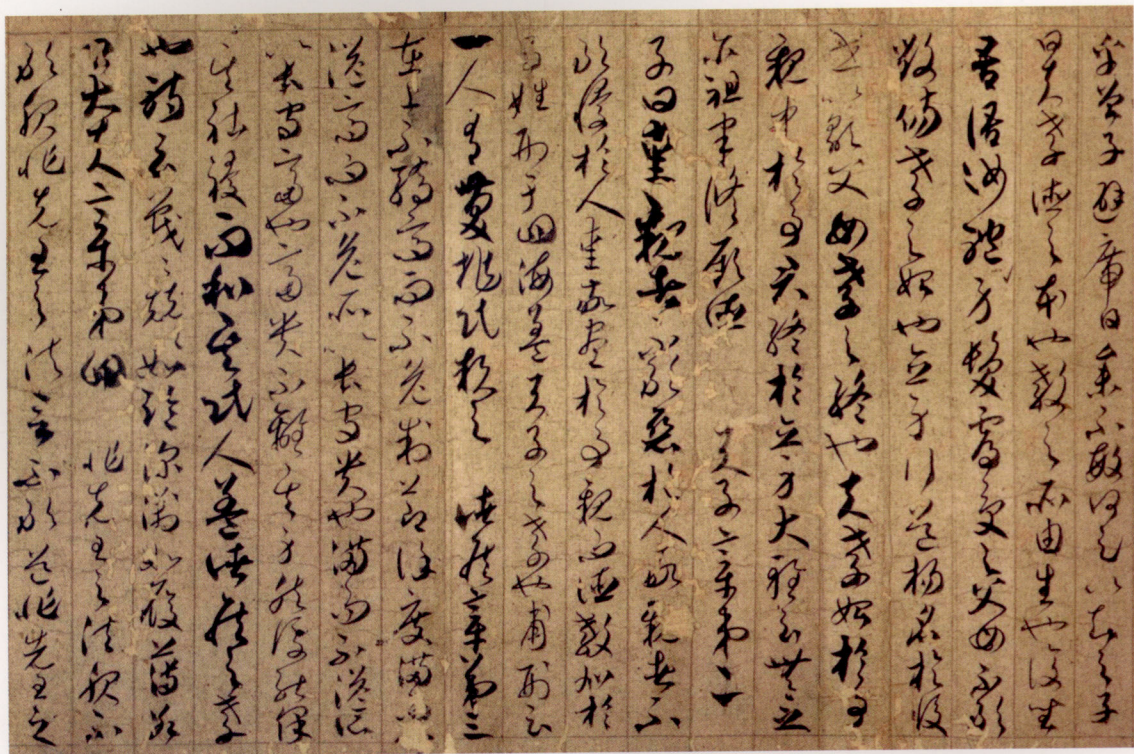 乎曾子避席曰參不敏何足以知之子
曰夫孝德之本也教之所由生也復坐
吾語汝體身髮膚受之父母不敢
毀傷孝之始也立身行道揚名於後
世以顯父母孝之終也夫孝始於事
親中於事君終於立身大雅云無念
尔祖聿脩厥德　天子章第二
子曰愛親者不敢惡於人敬親者不
敢慢於人愛敬盡於事親而德教加於
百姓刑于四海蓋天子之孝也甫刑云
一人有慶兆民賴之　諸侯章第三
在上不驕高而不危制節謹度滿而不
溢高而不危所以長守貴也滿而不溢所
以長守富也富貴不離其身然後能保
其社稷而和其民人蓋諸侯之孝
也詩云戰々兢々如臨深淵如履薄冰
卿大夫章第四　非先王之法服不
敢服非先王之法言不敢道非先王之